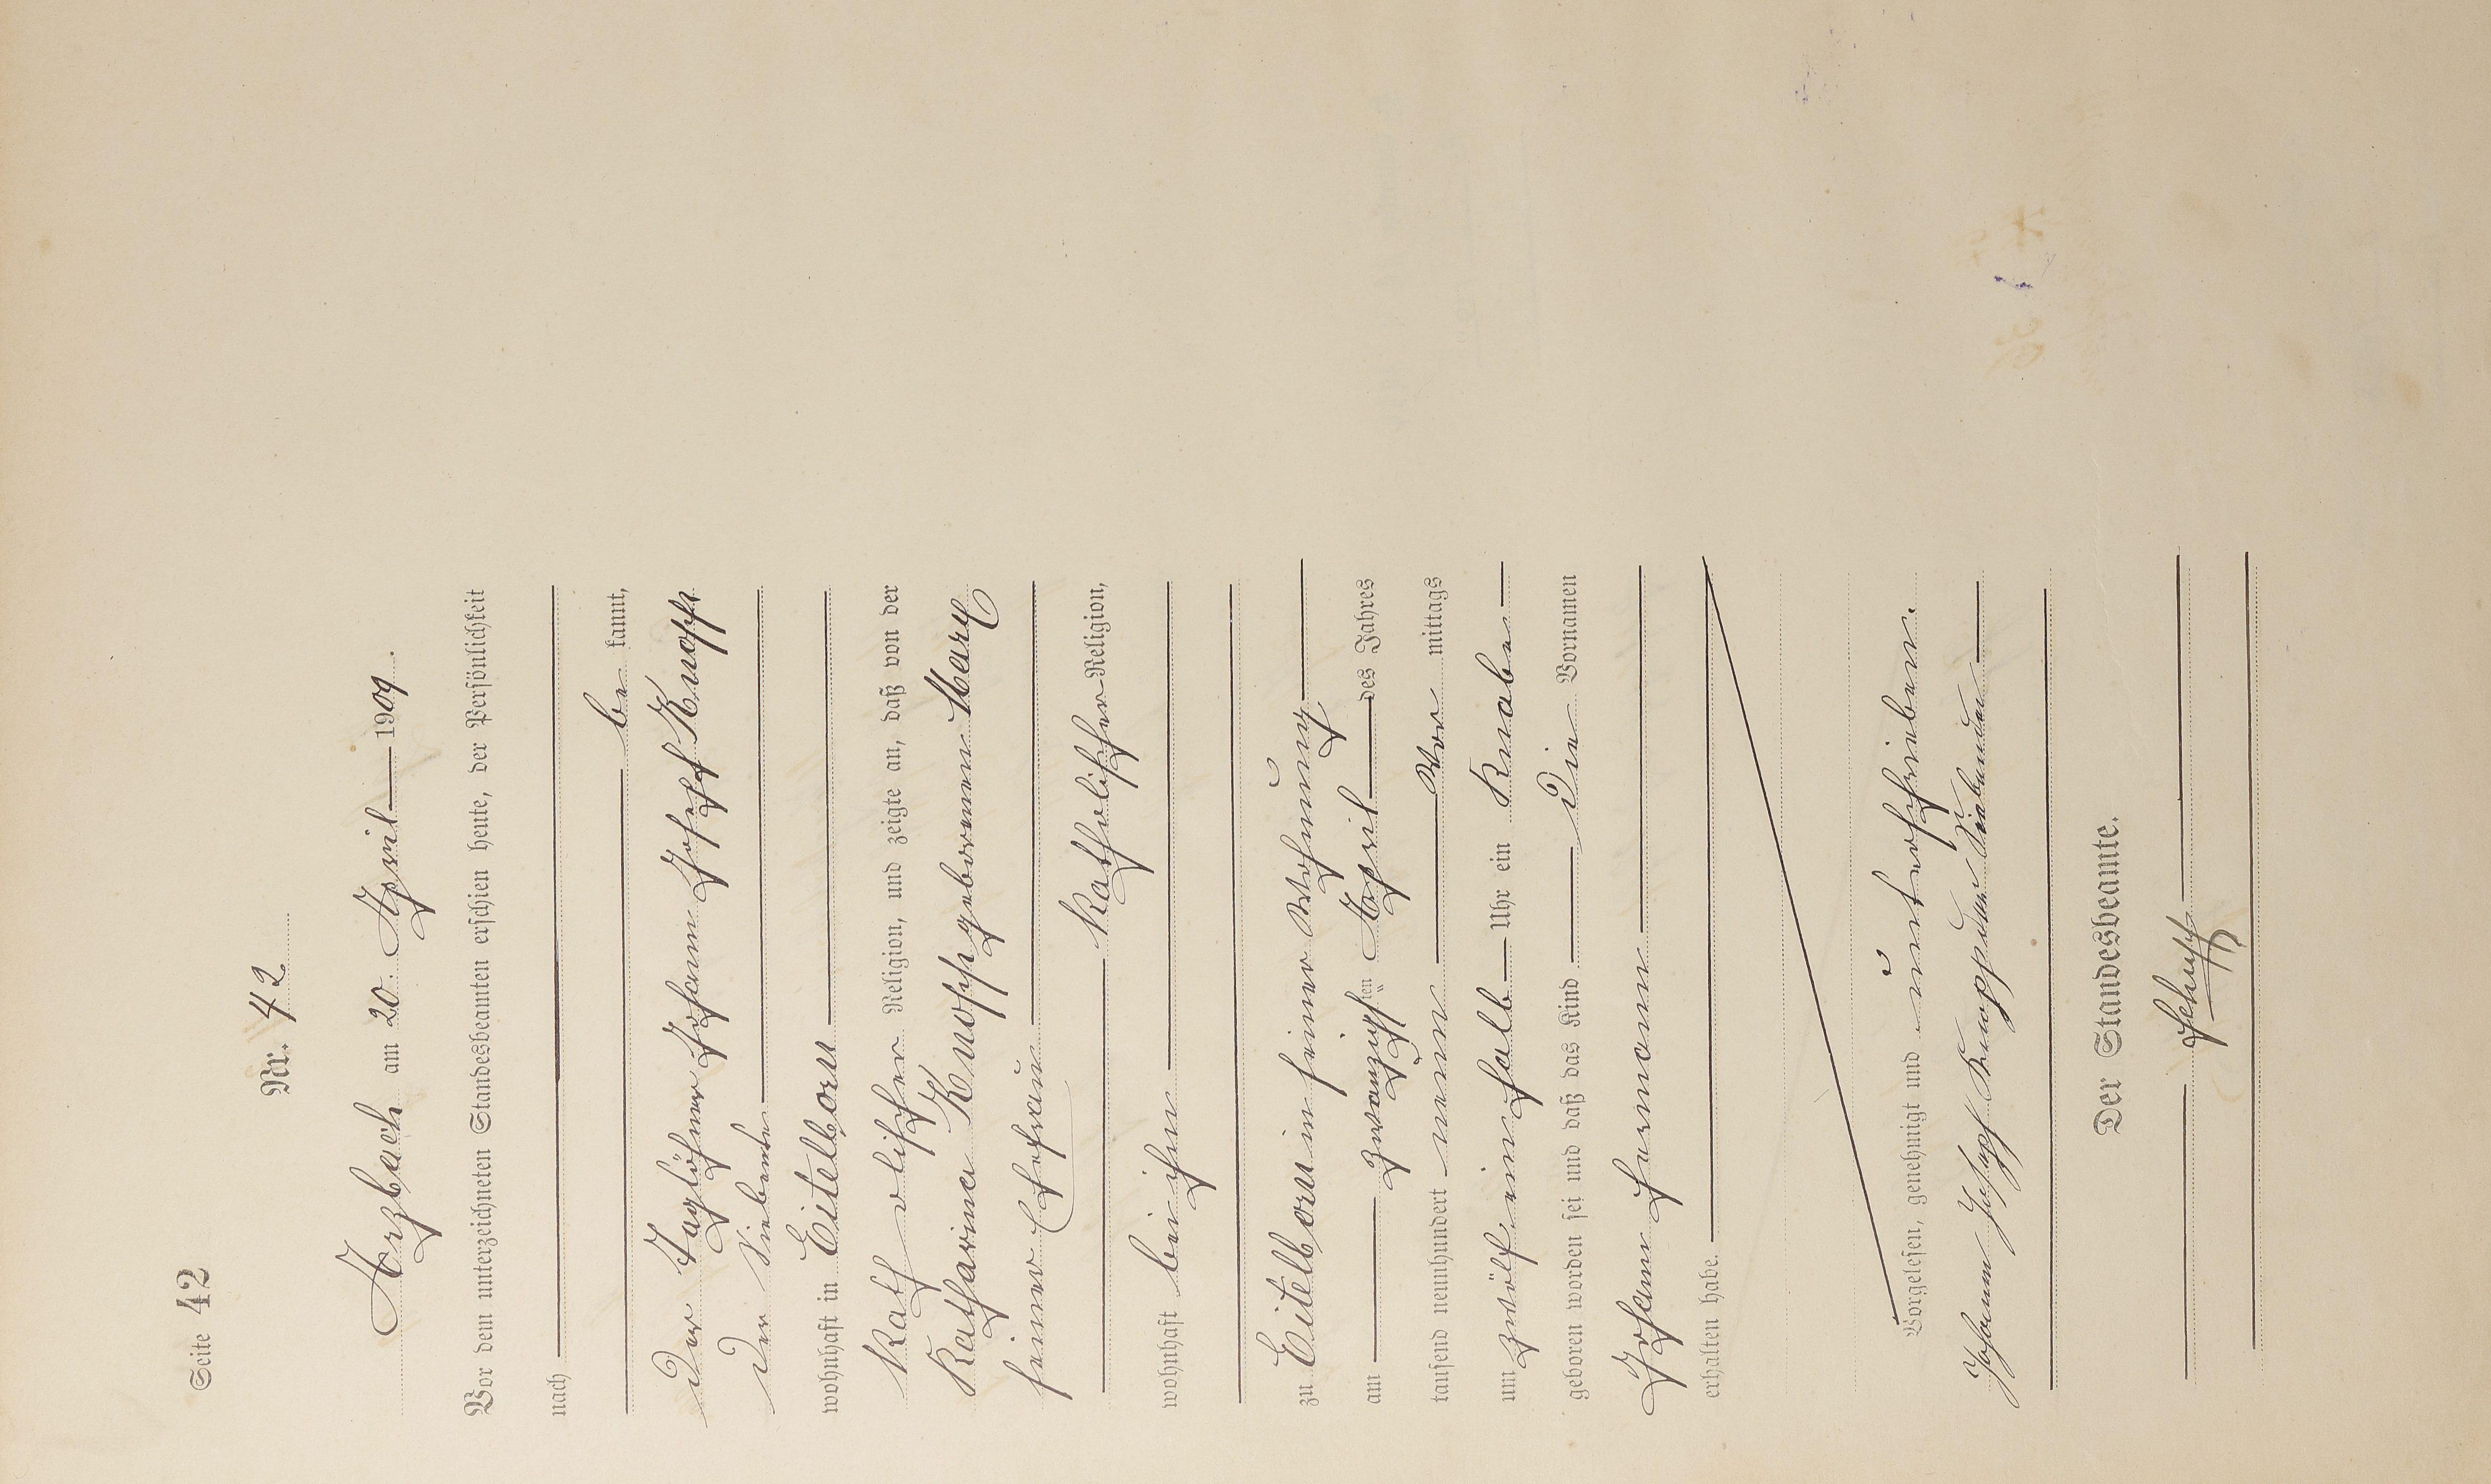 Seite 42
Nr. 42
Arzbach am 20. April 1909.
Vor dem unterzeichneten Standesbeamten erschien heute, der Persönlichkeit
nach
be kannt,
Der Taglöhner Johann Josef Knopp
Der Siebente
wohnhaft in Eitelborn
kath olischer Religion, und zeigte an, daß von der
Katharina Knopp geborenen Marx
seiner Ehefrau
katholischer Religion,
wohnhaft bei ihm
zu Eitelborn in seiner Wohnung
am zwanzigsten April des Jahres
tausend neunhundert neun Vor mittags
um zwölf einhalb Uhr ein Knabe
geboren worden sei und daß das Kind die Vornamen
Johann Hermann
erhalten habe.
Vorgelesen, genehmigt und unterschrieben.
Johann Joseph Knopp der Siebende
Der Standesbeamte.
Schupp